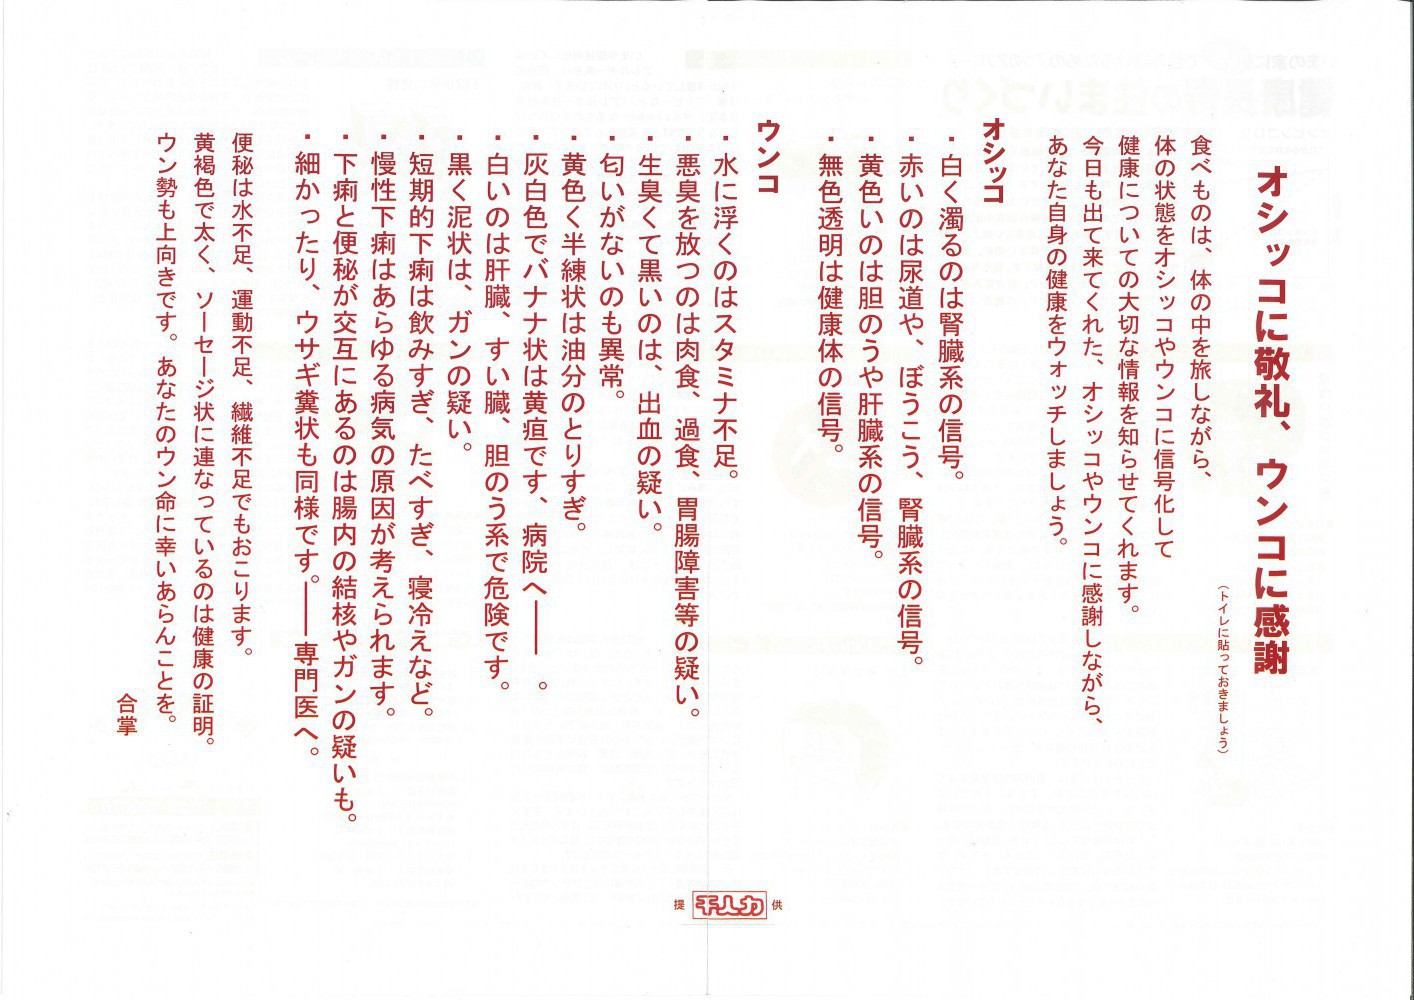 オシッコに敬礼、ウンコに感謝
（トイレに貼っておきましょう）
食べものは、体の中を旅しながら、
体の状態をオシッコやウンコに信号化して
健康についての大切な情報を知らせてくれます。
今日も出て来てくれた、オシッコやウンコに感謝しながら、
あなた自身の健康をウォッチしましょう。
オシッコ
・白く濁るのは腎臓系の信号。
・赤いのは尿道や、ぼうこう、腎臓系の信号。
・黄色いのは胆のうや肝臓系の信号。
・無色透明は健康体の信号。
ウンコ
・水に浮くのはスタミナ不足。
・悪臭を放つのは肉食、過食、胃腸障害等の疑い。
・生臭くて黒いのは、出血の疑い。
・匂いがないのも異常。
・黄色く半練状は油分のとりすぎ。
・灰白色でバナナ状は黄疸です、病院へ――。
・白いのは肝臓、すい臓、胆のう系で危険です。
・黒く泥状は、ガンの疑い。
・短期的下痢は飲みすぎ、たべすぎ、寝冷えなど。
・慢性下痢はあらゆる病気の原因が考えられます。
・下痢と便秘が交互にあるのは腸内の結核やガンの疑いも。
・細かったり、ウサギ糞状も同様です。――専門医へ。
便秘は水不足、運動不足、繊維不足でもおこります。
黄褐色で太く、ソーセージ状に連なっているのは健康の証明。
ウン勢も上向きです。あなたのウン命に幸いあらんことを。
合掌
提 千人力 供